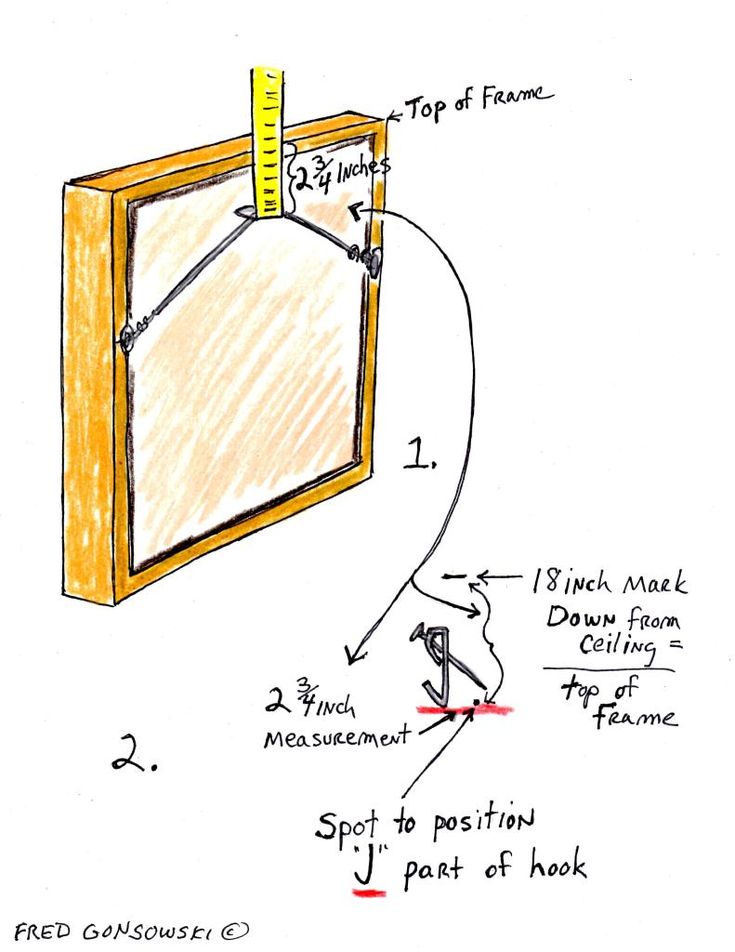 Top of Frame
2 3/4 Inches
1.
18 inch Mark
Down from
Ceiling =
top of
Frame
2 3/4 inch
Measurement
2.
Spot to position
"J" part of hook
FRED GONSOWSKI ©